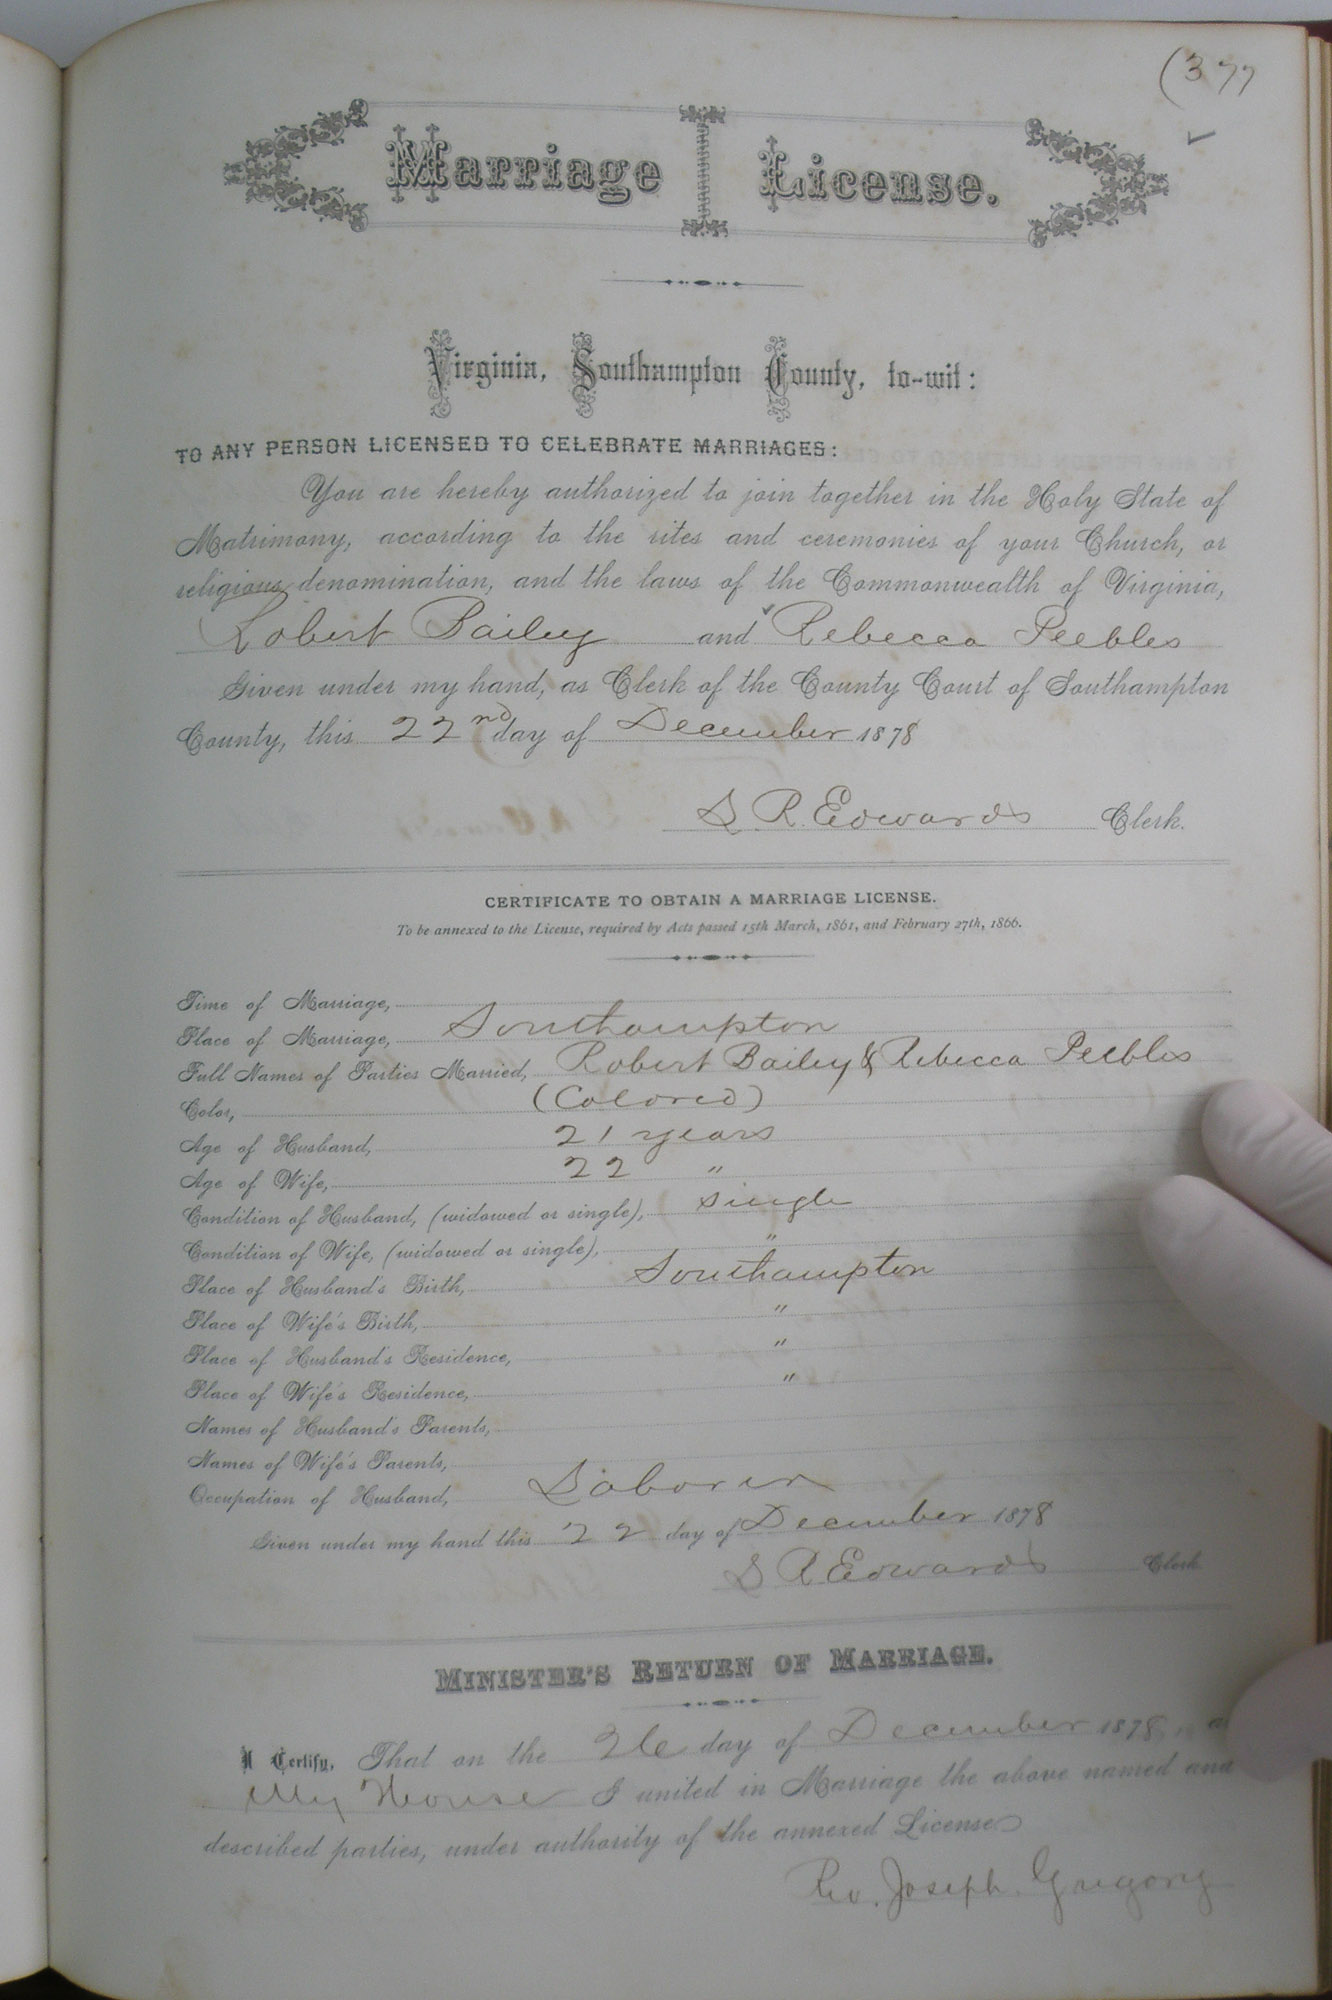 (377
Marriage License.
Virginia, Southampton County, to-wit:
TO ANY PERSON LICENSED TO CELEBRATE MARRIAGES:
You are hereby authorized to join together in the Holy State of
Matrimony, according to the rites and ceremonies of your Church, or
religious denomination, and the laws of the Commonwealth of Virginia,
Robert Bailey and Rebecca Peebles
Given under my hand, as Clerk of the County Court of Southampton
County, this 22nd day of December 1878
S R. Edwards Clerk.
CERTIFICATE TO OBTAIN A MARRIAGE LICENSE.
To be annexed to the License, required by Acts passed 15th March, 1861, and February 27th, 1866.
Time of Marriage,
Place of Marriage, Southampton
Full Names of Parties Married, Robert Bailey & Rebecca Peebles
Color, (Colored)
Age of Husband, 21 years
Age of Wife, 22 "
Condition of Husband, (widowed or single), single
Condition of Wife, (widowed or single), "
Place of Husband's Birth, Southampton
Place of Wife's Birth, "
Place of Husband's Residence, "
Place of Wife's Residence, "
Names of Husband's Parents,
Names of Wife's Parents,
Occupation of Husband, Laborer
Given under my hand this 22 day of December 1878
S R. Edwards Clerk
MINISTER'S RETURN OF MARRIAGE.
I Certify, That on the 26 day of December 1878, at
My House I united in Marriage the above named and
described parties, under authority of the annexed License
Rev. Joseph Gregory